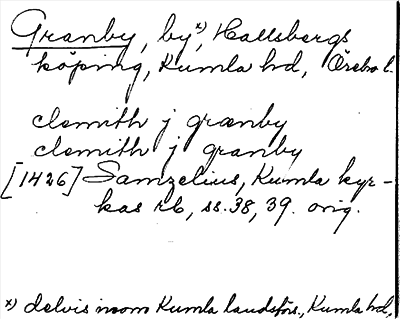 Granby, by x), Hallsbergs
köping, Kumla hd, Örebro l.
clemith j granby
clemith j granby
[1426] Samzelius, Kumla kyr-
kas rb, ss. 38, 39. orig.
x) delvis inom Kumla landsförs., Kumla hd,